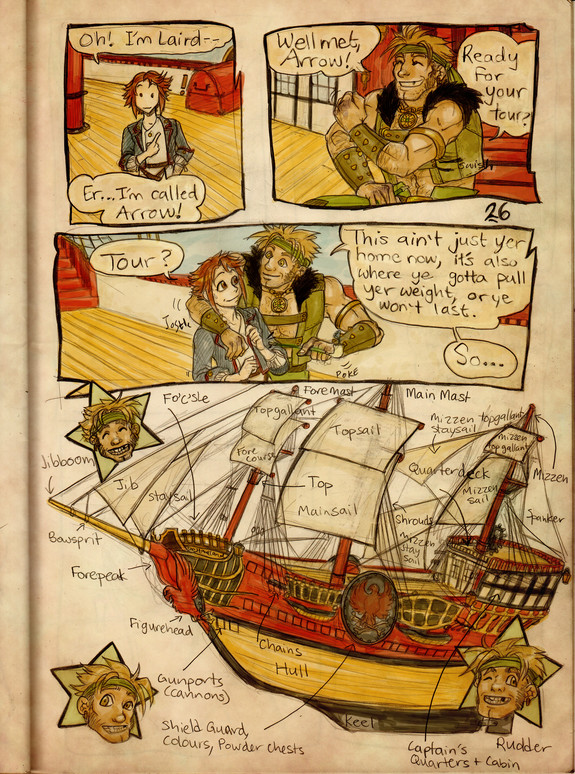 Oh! I'm Laird--
Er...I'm called
Arrow!
Well met,
Arrow!
Ready
For
your
tour?
Squish
26
Tour?
Jostle
This ain't just yer
home now, it's also
where ye gotta pull
yer weight, or ye
won't last.
So...
POKE
Fo'c'sle
Foremast
Main Mast
Topgallant
Topsail
Mizzen topgallant
staysail
Mizzen
topgallant
Jibboom
Jib
Staysail
Fore
course
Top
Mainsail
Quarterdeck
Mizzen
sail
Mizzen
Shrouds
Mizzen
stay
sail
Spanker
Bowsprit
Forepeak
Figurehead
Chains
Hull
Gunports
(cannons)
Shield Guard,
Colours, Powder chests
Keel
Captain's
Quarters + Cabin
Rudder